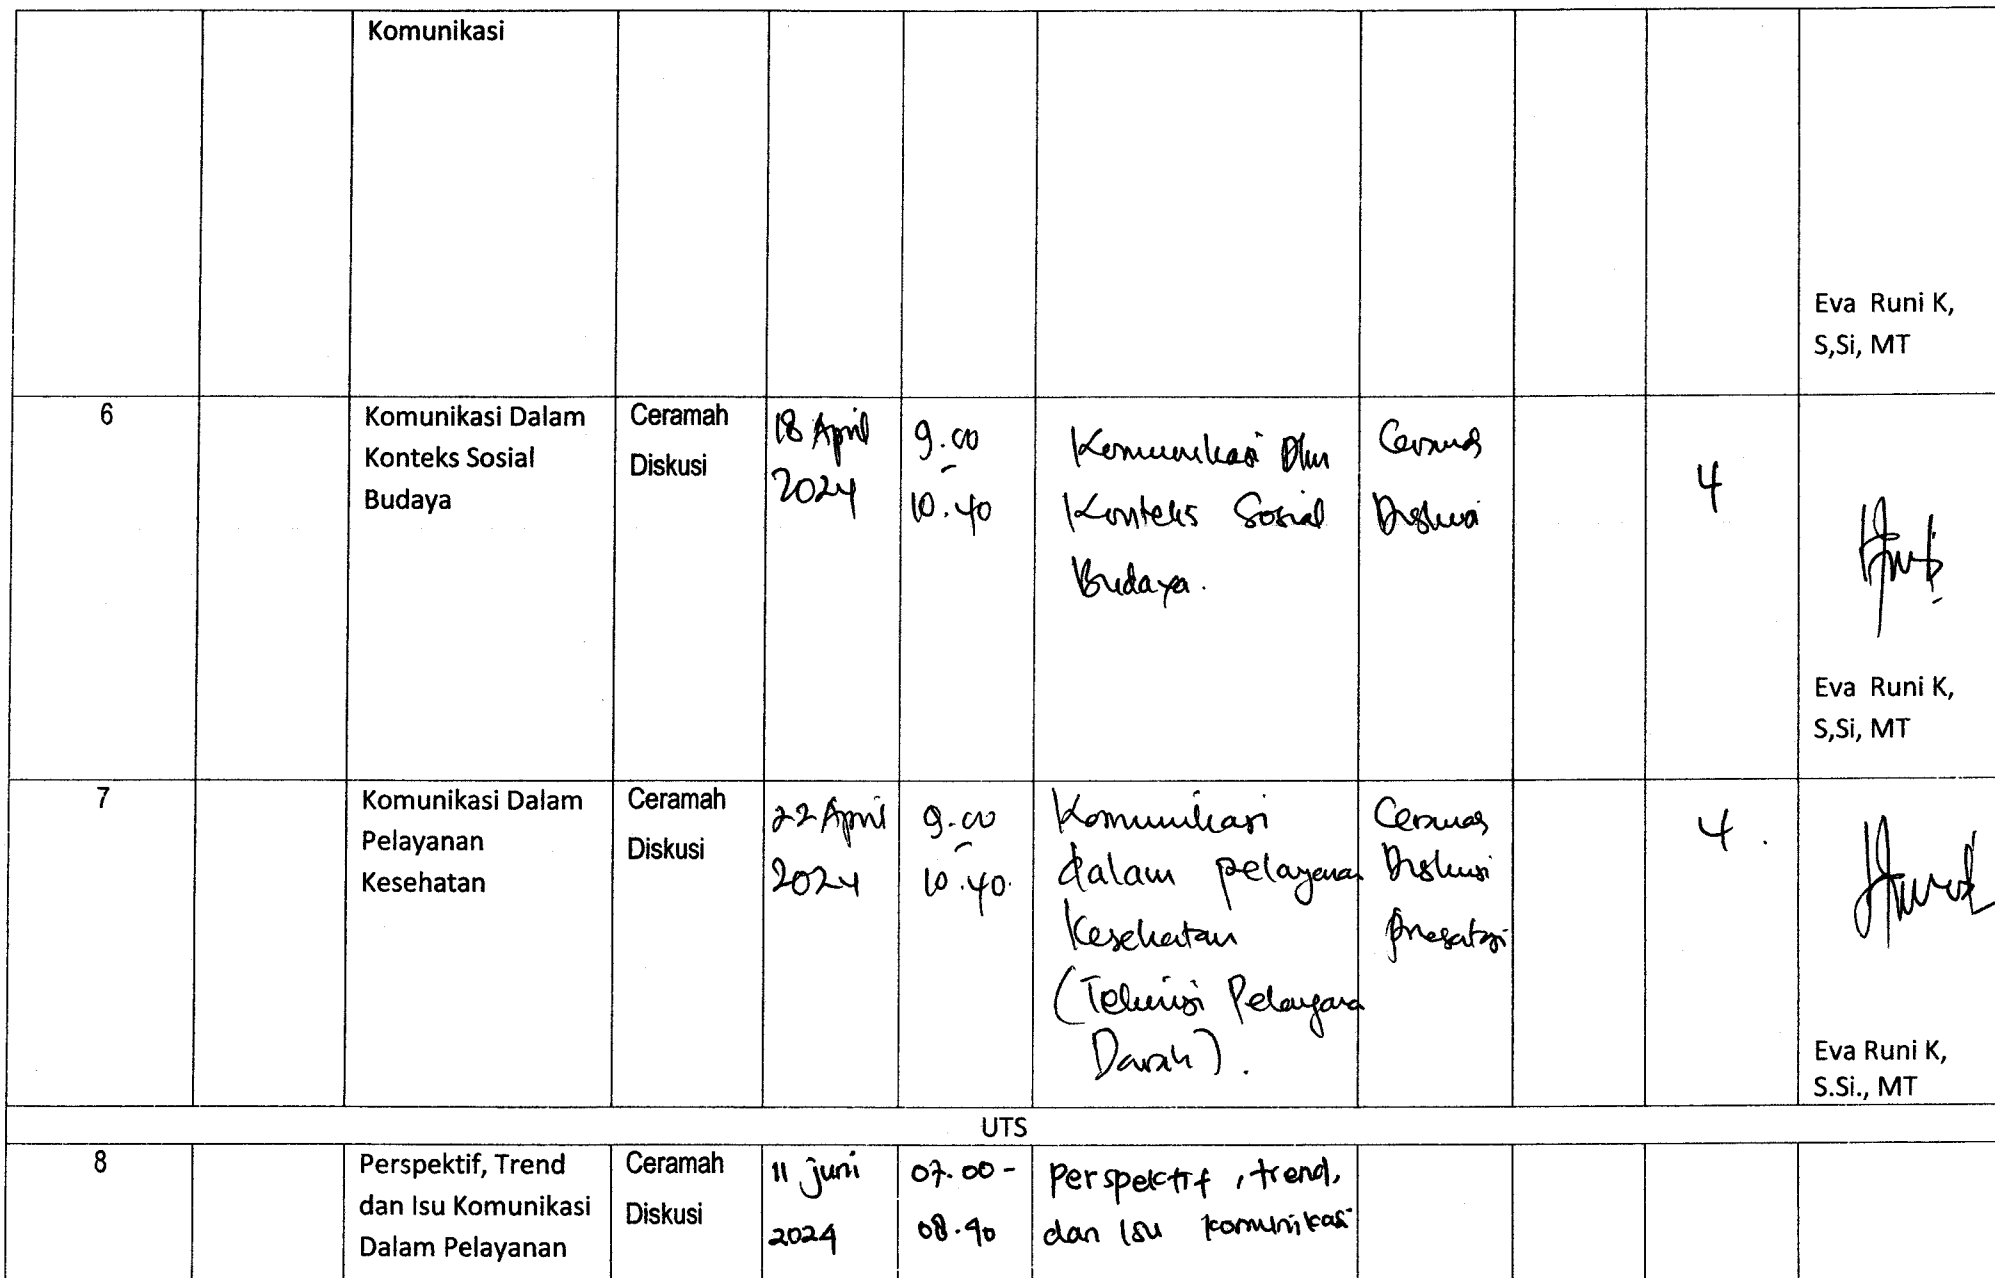 Komunikasi
Eva Runi K,
S,Si, MT
6
Komunikasi Dalam
Konteks Sosial
Budaya
Ceramah
Diskusi
18 April
2024
9.00
-
10.40
Komunikasi Dlm
Konteks Sosial
Budaya.
Diskusi
4
Eva Runi K,
S,Si, MT
7
Komunikasi Dalam
Pelayanan
Kesehatan
Ceramah
Diskusi
22 April
2024
9.00
-
10.40.
Komunikasi
dalam pelayanan
Kesehatan
( Pelayanan
Darah).
Diskusi
4.
Eva Runi K,
S.Si., MT
UTS
8
Perspektif, Trend
dan Isu Komunikasi
Dalam Pelayanan
Ceramah
Diskusi
11 juni
2024
07.00 -
08.40
Perspektif, trend,
dan Isu komunikasi